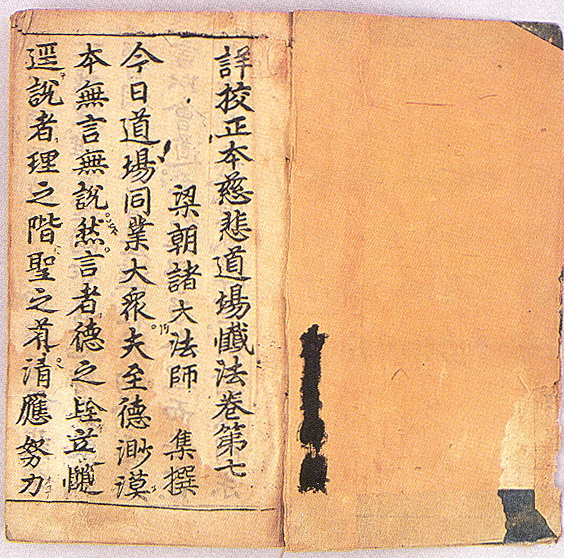 詳校正本慈悲道場懺法卷第七
梁朝諸大法師 集撰
今日道場同業大衆夫至德渺漠
本無言無說然言者德之
逕說者理之階聖之清應努力